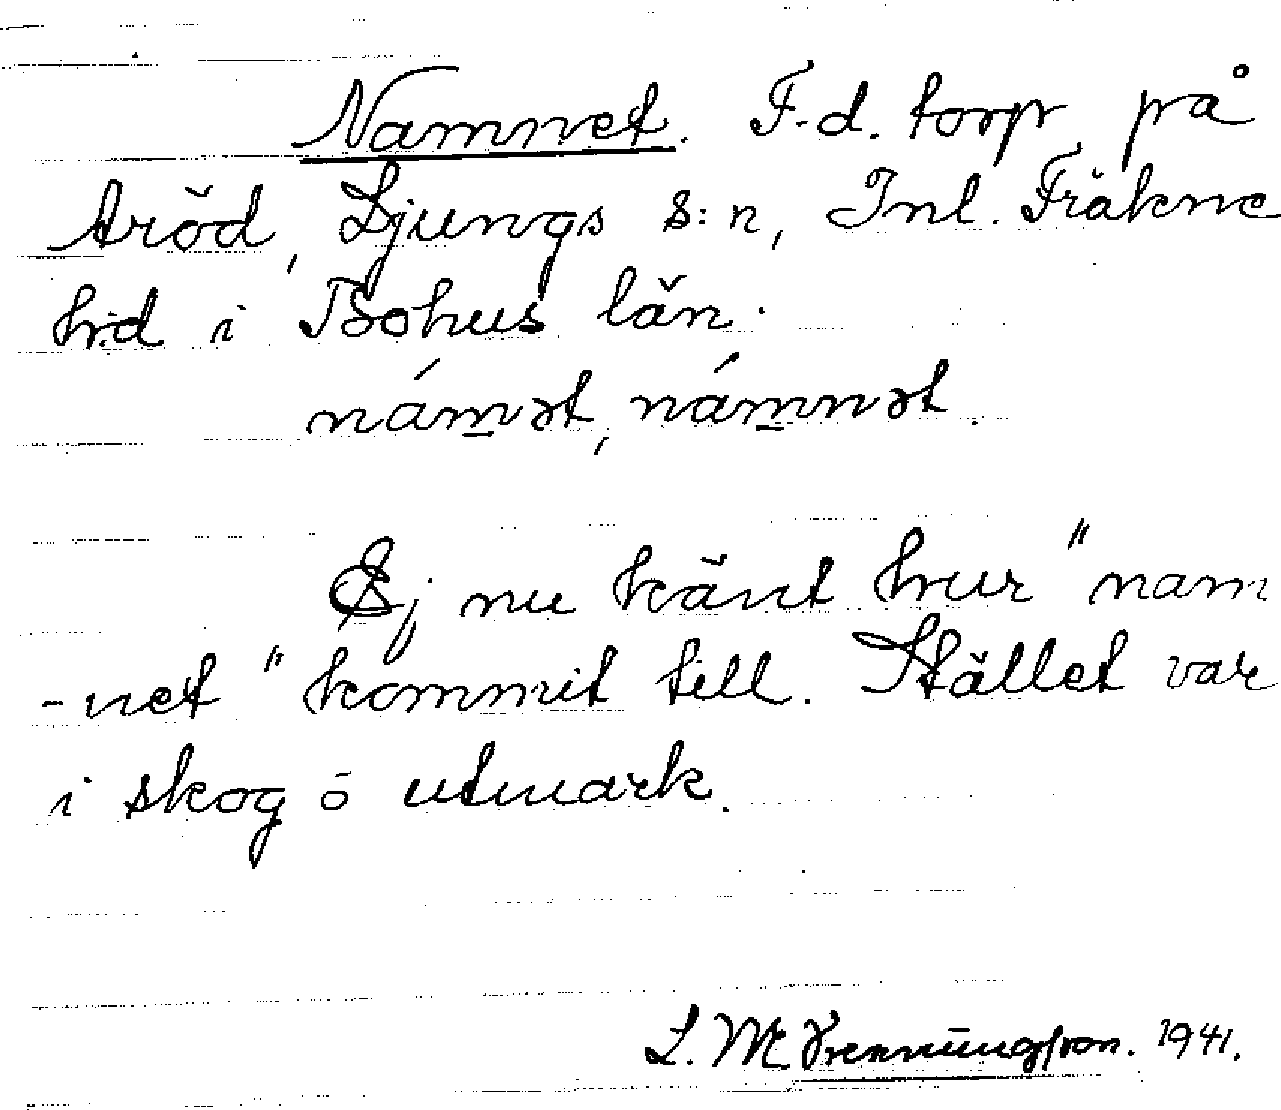 Namnet. F.d. torp på
Aröd, Ljungs s:n, Inl. Fräkne
hd i Bohus län.
námət, námnət.
Ej nu känt hur "nam
-net" kommit till. Stället var
i skog o utmark.
L. M. 1941.